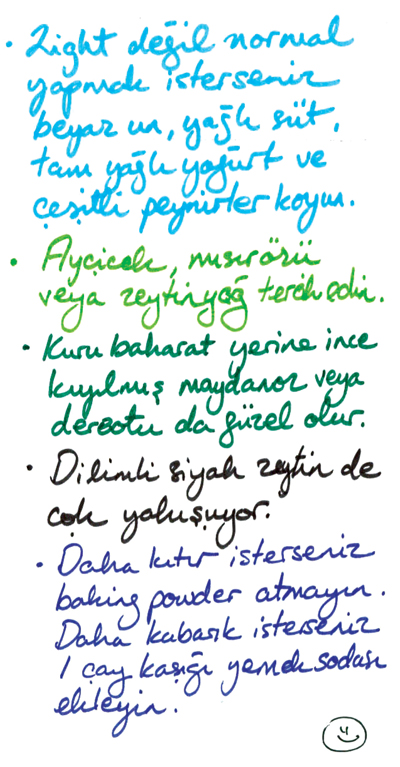 • Light değil normal
yapmak isterseniz
beyaz un, yağlı süt,
tam yağlı yoğurt ve
çeşitli peynirler koyun.
• Ayçiçek, mısırözü
veya zeytinyağ tercih edin.
• Kuru baharat yerine ince
kıyılmış maydanoz veya
dereotu da güzel olur.
• Dilimli siyah zeytin de
çok yakışıyor.
• Daha kıtır isterseniz
baking powder atmayın.
Daha kabarık isterseniz
1 çay kaşığı yemek sodası
ekleyin.